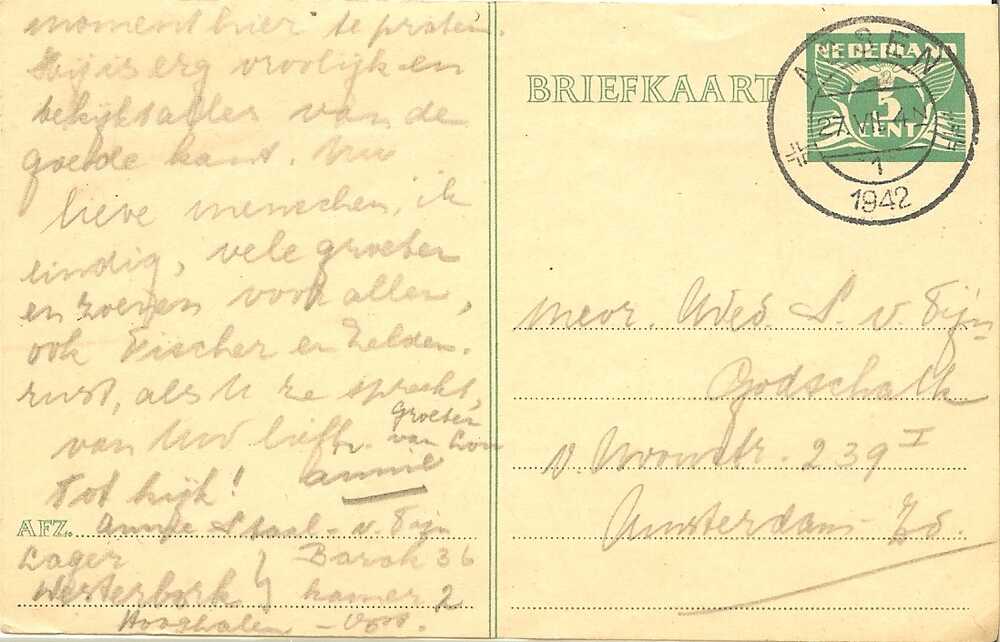 moment hier te praten.
Hij is erg vroolijk en
bekijkt alles van de
goede kant. Nu
lieve menschen, ik
eindig, vele groeten
en zoenen voor allen,
ook Fischer en Zelden-
rust, als U ze spreekt,
van Uw liefh.
Groeten
van Lou
Annie
Tot kijk!
AFZ. Annie Staal-v. Tijn
Lager
Westerbork } Barak 36
kamer 2
Hooghalen - Oost.
BRIEFKAART
NEDERLAND
5
CENT
ASSEN
2
27.VII
1
1942
Mevr. Wed. S. v. Tijn-
Godschalk
v. Woustr. 239 I
Amsterdam-Zd.